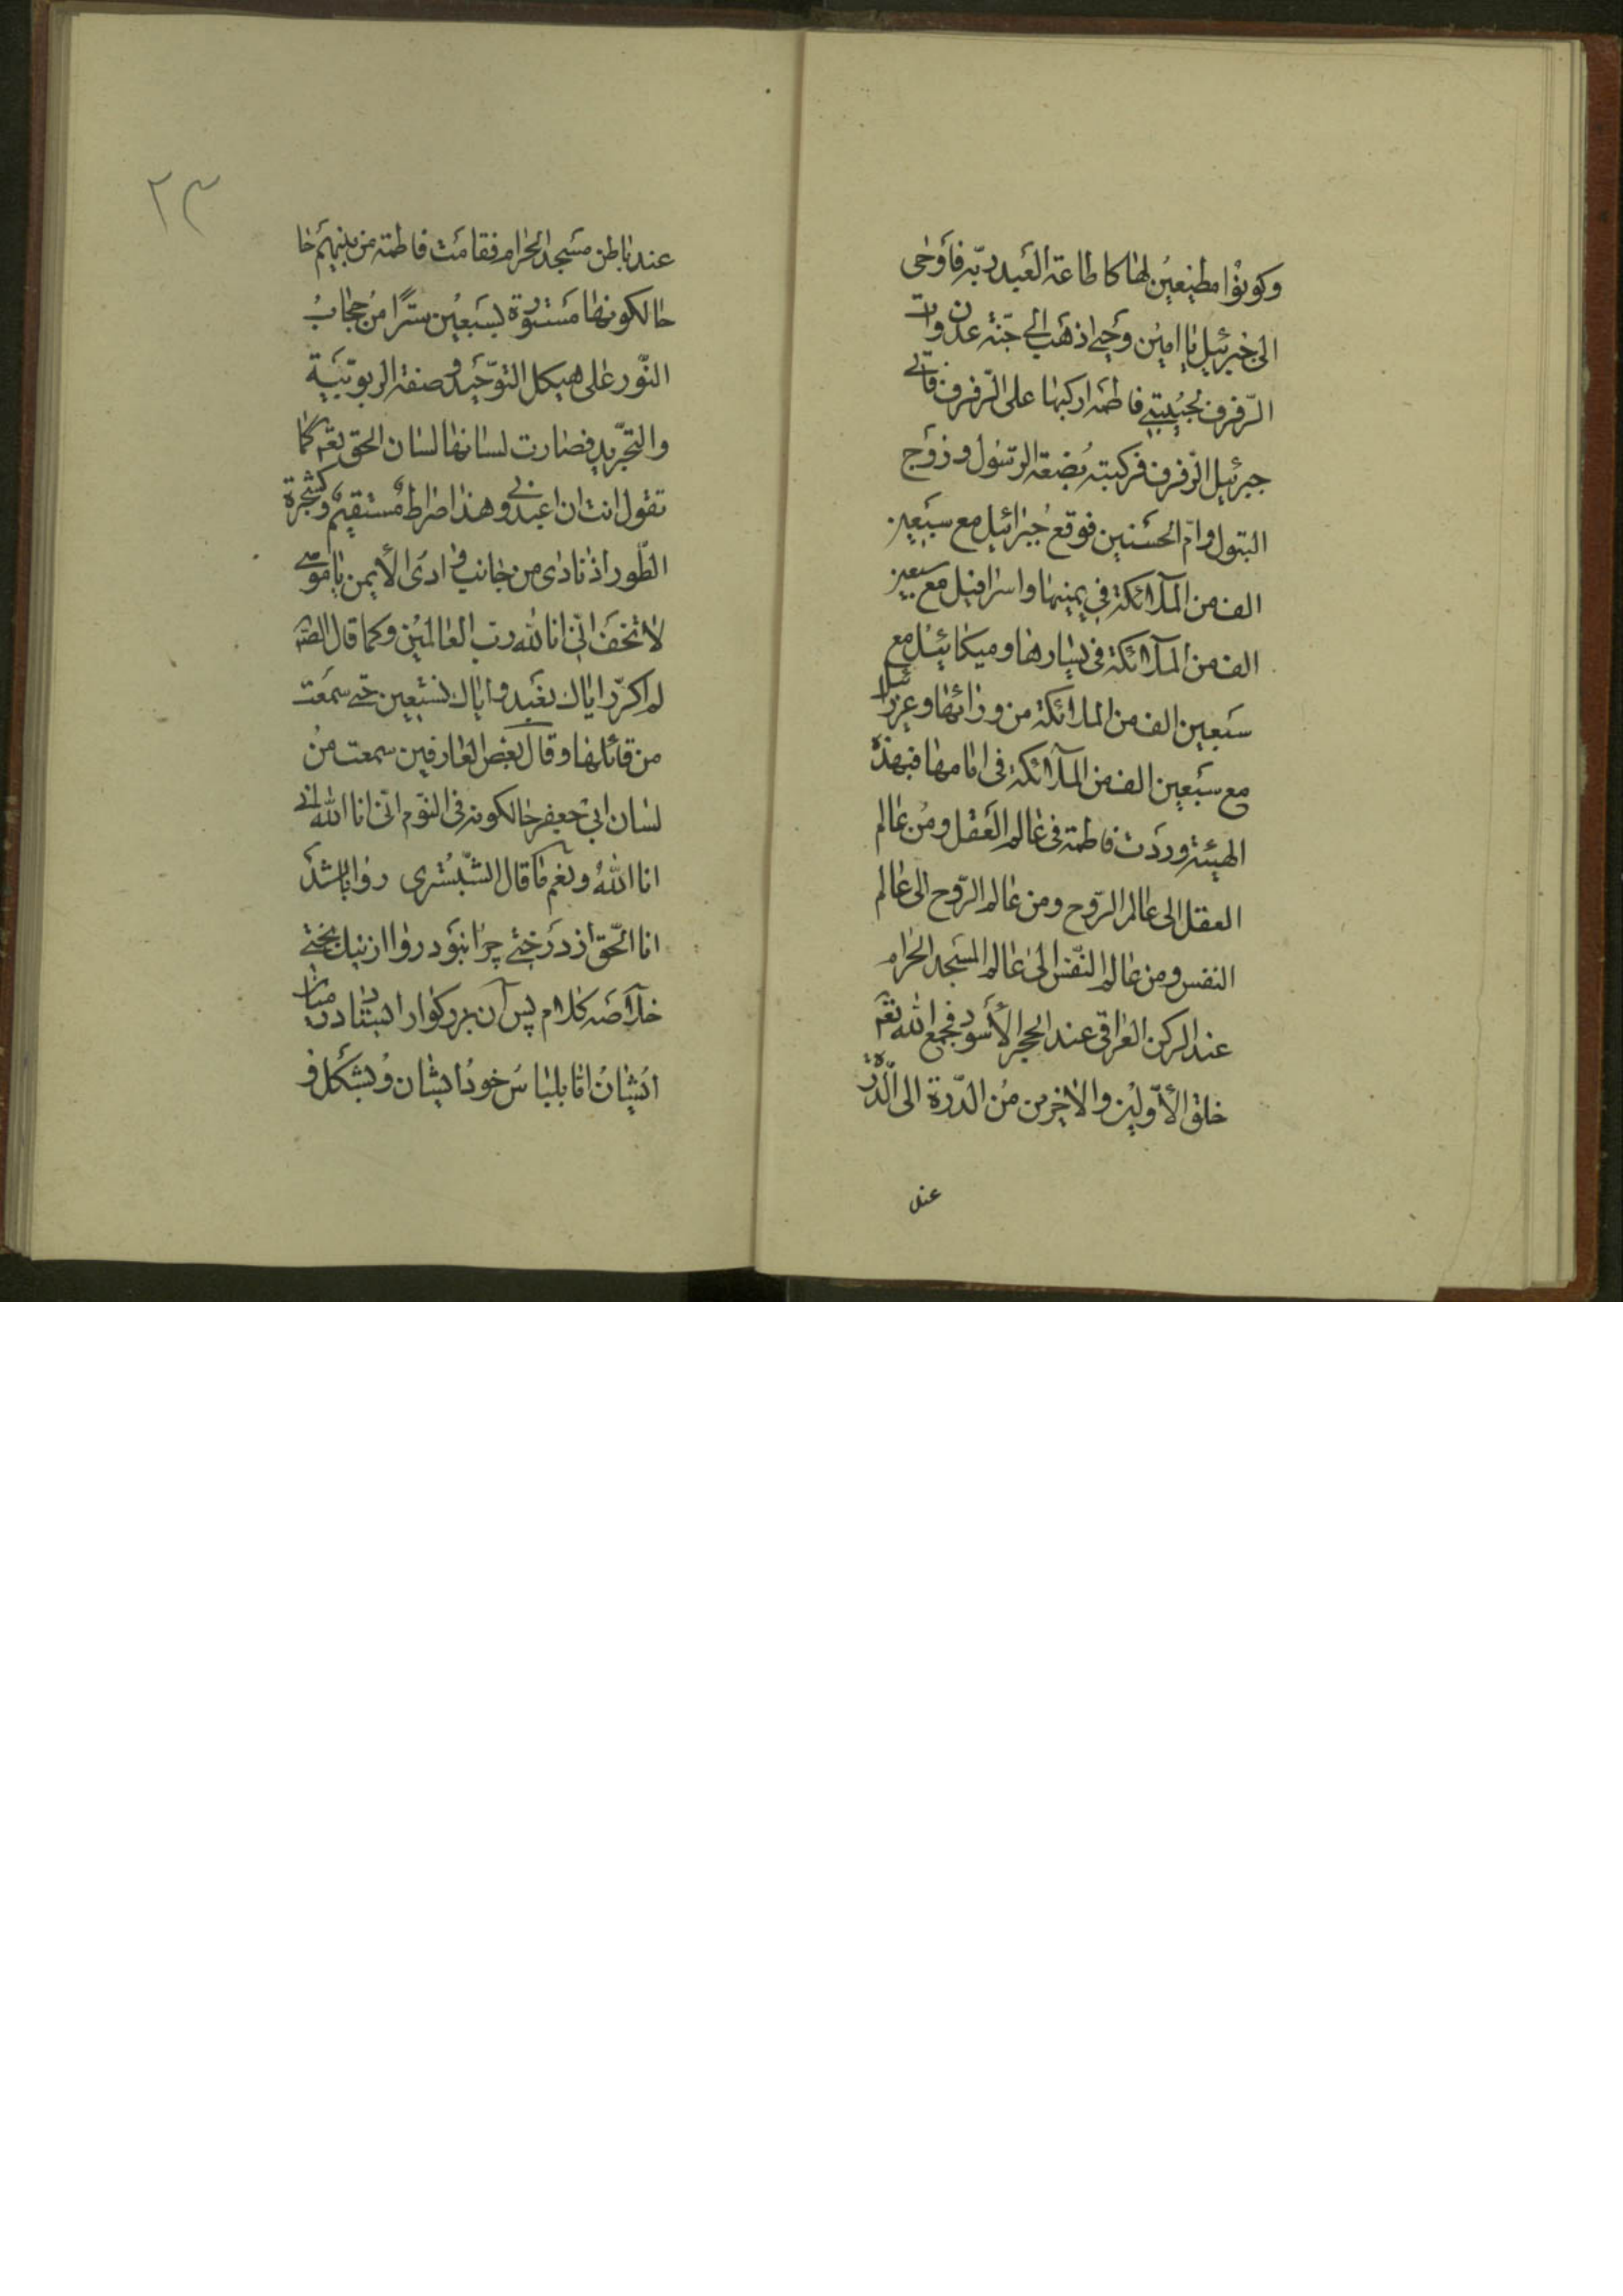 وكونوا مطيعين لها كاطاعة العبد ربّه فأوحى
الى جبرئيل يا امين وحيي اذهب الى جنّة عدن وات
الرّفرف لحبيبتي فاطمة اركبها على الرّفرف فاتى
جبرئيل الرّفرف فركبته بضعة الرّسول و زوج
البتول و امّ الحسنين فوقع جبرائيل مع سبعين
الف من الملآئكة في يمينها و اسرافيل مع سبعين
الف من الملآئكة في يسارها و ميكائيل مع
سبعين الف من الملائكة من ورائها و عزرائيل
مع سبعين الف من الملآئكة فى امامها فبهذه
الهيئة وردت فاطمة فى عالم العقل و من عالم
العقل الى عالم الرّوح و من عالم الرّوح الى عالم
النفس و من عالم النّفس الى عالم المسجد الحرام
عند الركن العراقى عند الحجر الأسود فجمع الله تعم
خلق الأوّلين و الاخرين من الدّرة الى الدّرّة
عند
٢٣
عند باطن مسجد الحرام فقامت فاطمة من بينهم حا
حالكونها مستورة بسبعين سترًا من حجاب
النّور على هيكل التوّحيد و صفة الربوبيّة
والتجرّيد فصارت لسانها لسان الحق تعم كما
تقول انت ان اعبدونى و هذا صراط مستقيم و كشجرة
الطّور اذ نادى من جانب وادى الأيمن يا موسى
لا تخف انّى انا لله ربّ العالمين و كما قال الصّ
لم اكرّر اياك نعبد و اياك نستعين حتى سمعت
من قائلها و قال بعض العارفين سمعت من
لسان ابى جعفر حالكونه فى النّوم انّى انا الله انى
انا الله و نعم ما قال الشّبسترى روا باشد
انا الحّق از درختى چرا نبود روا از نيك بختى
خلآصه كلام پس آن بزركوار ايستاد در ميان
ايشان اما بلباس خود ايشان و بشكل و